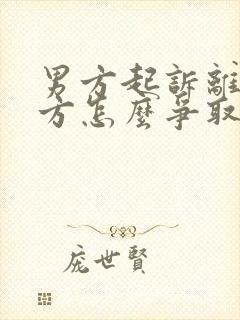 男方起訴離
方怎麼爭取
龐世賢